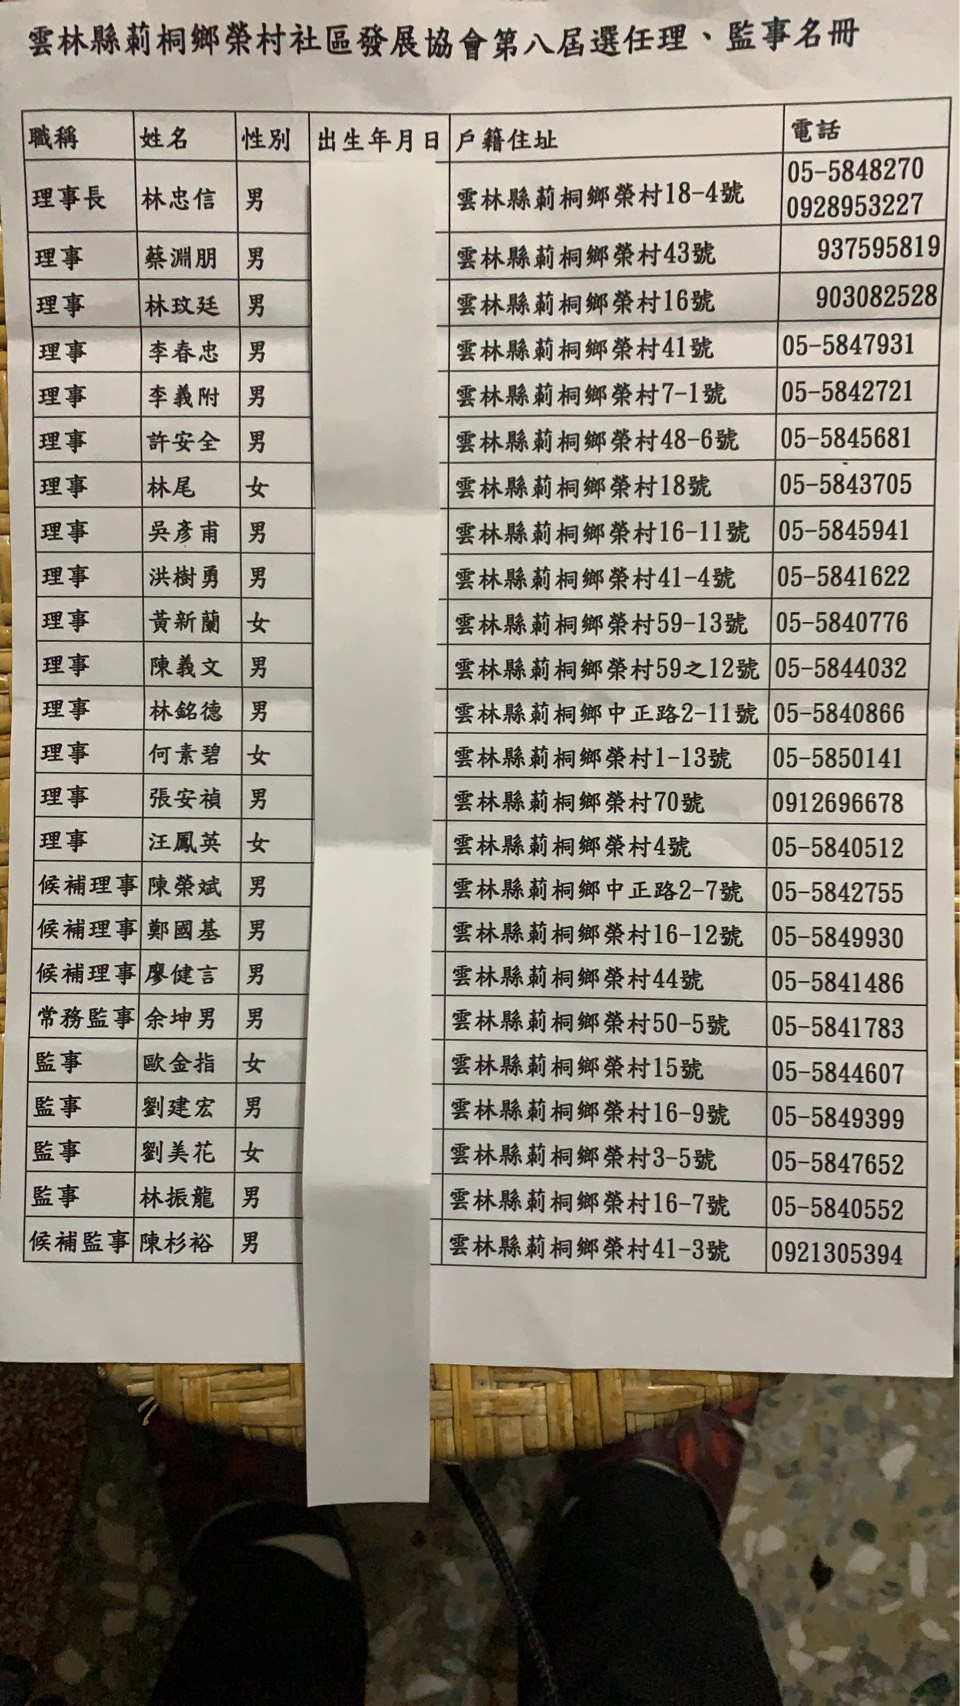 雲林縣莿桐鄉榮村社區發展協會第八屆選任理、監事名冊
職稱 姓名 性別 出生年月日 戶籍住址 電話
理事長 林忠信 男 雲林縣莿桐鄉榮村18-4號 05-5848270
0928953227
理事 蔡淵朋 男 雲林縣莿桐鄉榮村43號 937595819
理事 林玟廷 男 雲林縣莿桐鄉榮村16號 903082528
理事 李春忠 男 雲林縣莿桐鄉榮村41號 05-5847931
理事 李義附 男 雲林縣莿桐鄉榮村7-1號 05-5842721
理事 許安全 男 雲林縣莿桐鄉榮村48-6號 05-5845681
理事 林尾 女 雲林縣莿桐鄉榮村18號 05-5843705
理事 吳彥甫 男 雲林縣莿桐鄉榮村16-11號 05-5845941
理事 洪樹勇 男 雲林縣莿桐鄉榮村41-4號 05-5841622
理事 黃新蘭 女 雲林縣莿桐鄉榮村59-13號 05-5840776
理事 陳義文 男 雲林縣莿桐鄉榮村59之12號 05-5844032
理事 林銘德 男 雲林縣莿桐鄉中正路2-11號 05-5840866
理事 何素碧 女 雲林縣莿桐鄉榮村1-13號 05-5850141
理事 張安禎 男 雲林縣莿桐鄉榮村70號 0912696678
理事 汪鳳英 女 雲林縣莿桐鄉榮村4號 05-5840512
候補理事 陳榮斌 男 雲林縣莿桐鄉中正路2-7號 05-5842755
候補理事 鄭國基 男 雲林縣莿桐鄉榮村16-12號 05-5849930
候補理事 廖健言 男 雲林縣莿桐鄉榮村44號 05-5841486
常務監事 余坤男 男 雲林縣莿桐鄉榮村50-5號 05-5841783
監事 歐金指 女 雲林縣莿桐鄉榮村15號 05-5844607
監事 劉建宏 男 雲林縣莿桐鄉榮村16-9號 05-5849399
監事 劉美花 女 雲林縣莿桐鄉榮村3-5號 05-5847652
監事 林振龍 男 雲林縣莿桐鄉榮村16-7號 05-5840552
候補監事 陳杉裕 男 雲林縣莿桐鄉榮村41-3號 0921305394